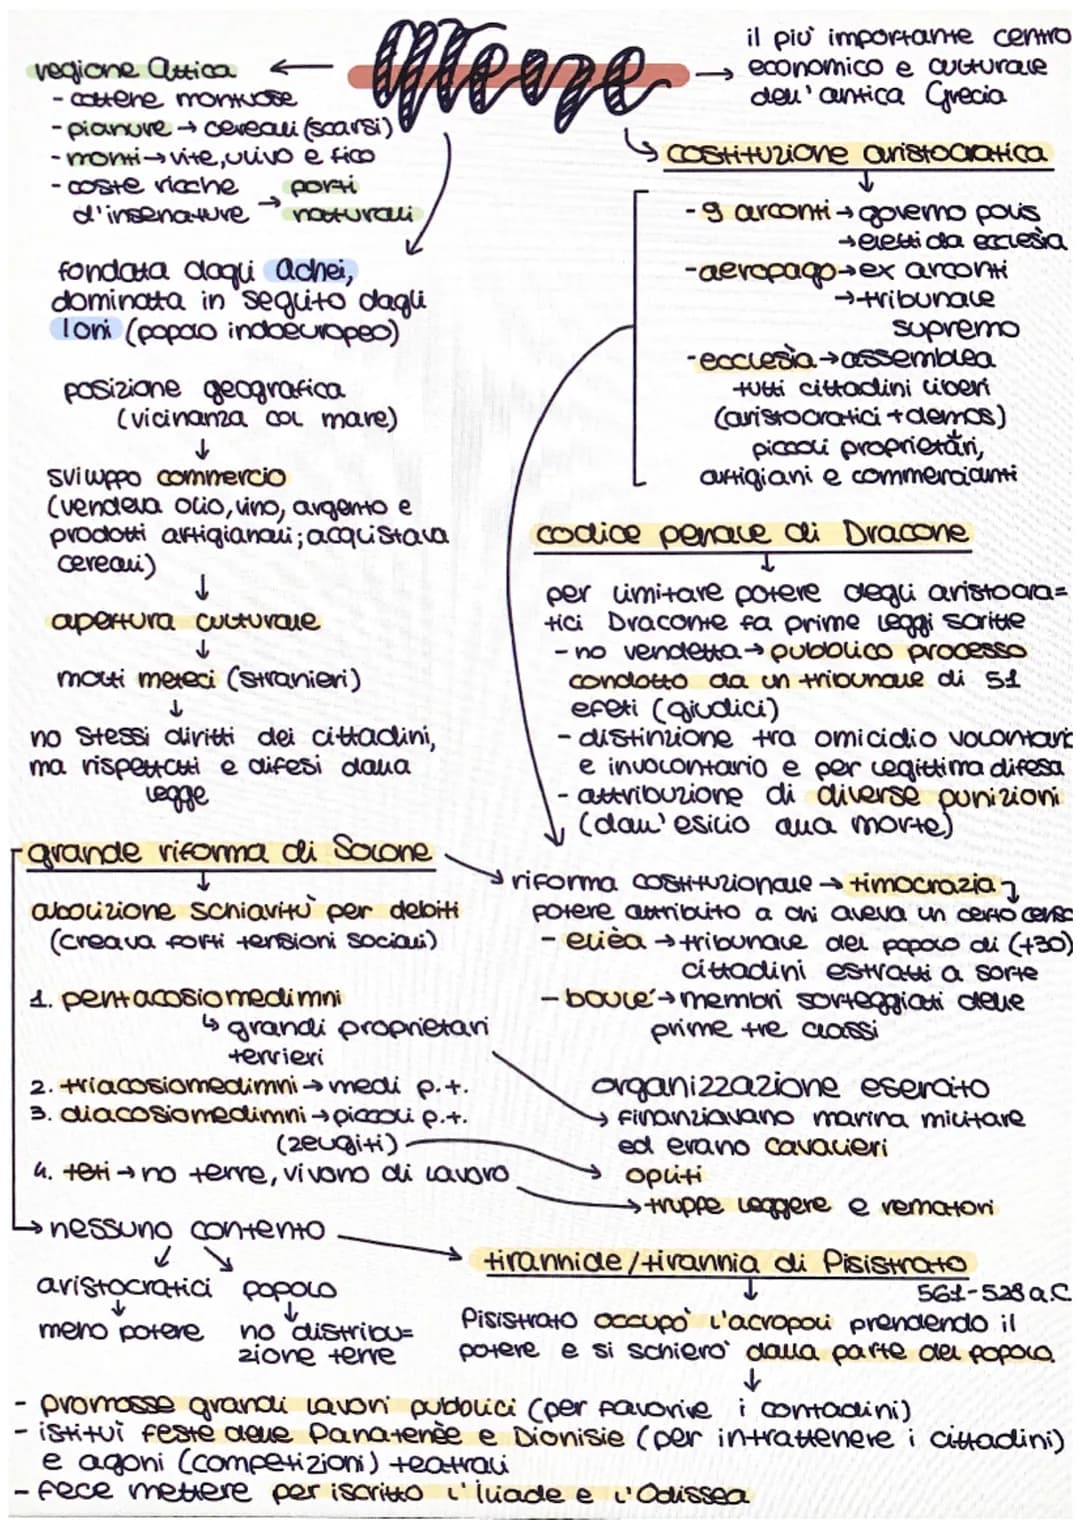 Atene
il più importante centro
economico e culturale
dell'antica Grecia
regione attica
- catene montuose
- pianure → cereali (scarsi)
- monti → vite, ulivo e fico
- coste ricche d'insenature → porti naturali
fondata dagli Achei,
dominata in seguito dagli
Ioni (popolo indoeuropeo)
posizione geografica
(vicinanza col mare)
↓
sviluppo commercio
(vendeva olio, vino, argento e
prodotti artigianali; acquistava
cereali)
↓
apertura culturale
↓
molti meteci (stranieri)
↓
no stessi diritti dei cittadini,
ma rispettati e difesi dalla
legge
costituzione aristocratica
↓
- 9 arconti → governo polis
→ eletti da ecclesìa
- aeropago → ex arconti
→ tribunale
supremo
- ecclesìa → assemblea
tutti cittadini liberi
(aristocratici + demos)
↓
piccoli proprietari,
artigiani e commercianti
codice penale di Dracone
↓
per limitare potere degli aristocra=
tici Draconte fa prime leggi scritte
- no vendetta → pubblico processo
condotto da un tribunale di 51
efeti (giudici)
- distinzione tra omicidio volontario
e involontario e per legittima difesa
- attribuzione di diverse punizioni
(dall'esilio alla morte)
grande riforma di Solone
↓
abolizione schiavitù per debiti
(creava forti tensioni sociali)
1. pentacosiomedimni
↳ grandi proprietari
terrieri
2. triacosiomedimni → medi p.t.
3. diacosiomedimni → piccoli p.t.
(zeugiti)
4. teti → no terre, vivono di lavoro
riforma costituzionale → timocrazia
potere attribuito a chi aveva un certo censo
- elièa → tribunale del popolo di (+30)
cittadini estratti a sorte
- boulé → membri sorteggiati delle
prime tre classi
organizzazione esercito
→ finanziavano marina militare
ed erano cavalieri
→ opliti
→ truppe leggere e rematori
→ nessuno contento
aristocratici popolo
↓ ↓
meno potere no distribu=
zione terre
tirannide/tirannia di Pisistrato
561-528 a.C.
Pisistrato occupò l'acropoli prendendo il
potere e si schierò dalla parte del popolo.
↓
- promosse grandi lavori pubblici (per favorire i contadini)
- istituì feste delle Panatenèe e Dionisie (per intrattenere i cittadini)
e agoni (competizioni) teatrali
- fece mettere per iscritto l'Iliade e l'Odissea